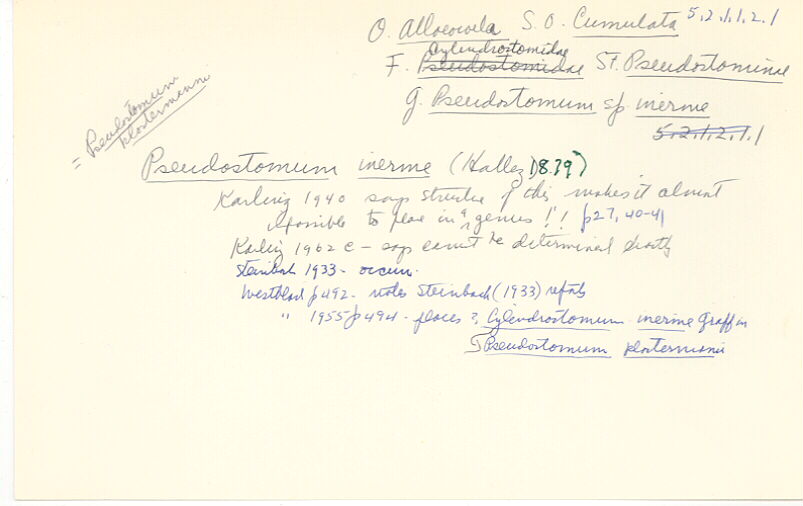 O. Alloeocoela S.O. Cumulata 5.2.1.1.2.1
Cylindrostomidae
F. Pseudostomidae Sf. Pseudostominae
G. Pseudostomum sp. inerme
5.2.1.2.1.1
= Pseudostomum
klostermanni
Pseudostomum inerme (Hallez 1879)
Karling 1940 says structure of this makes it almost
impossible to place in a genus!! p27, 40-41
Karling 1962 c - says cannot be determined exactly
Steinbock 1933 - occur.
Westblad p492 - notes Steinbock (1933) refers
" 1955 p494 - places ? Cylindrostomum inerme Graff in
Pseudostomum klostermanni